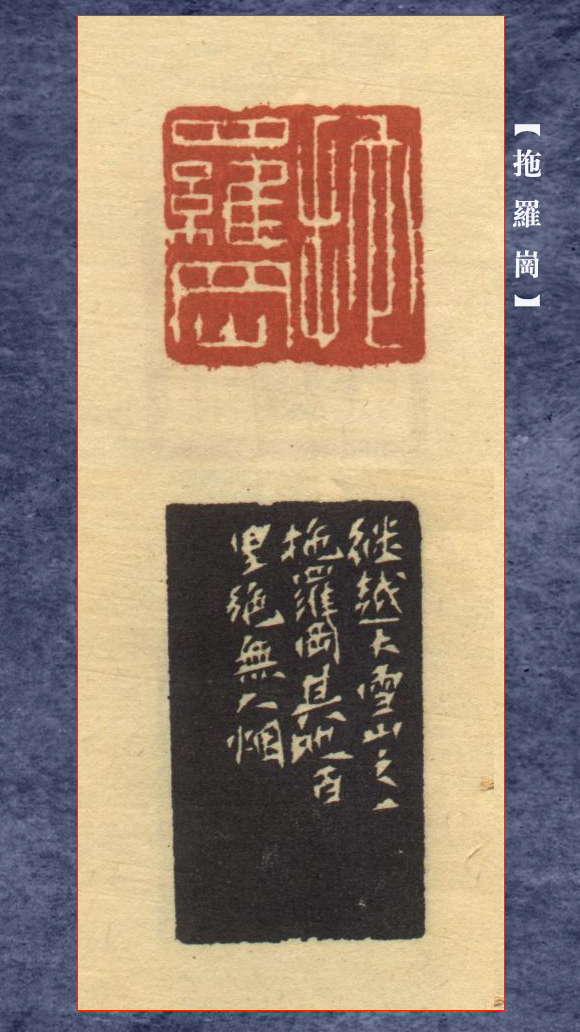 【拖羅崗】
拖羅岡
继越大雪山之一
拖羅岡其地百
里絶無人烟